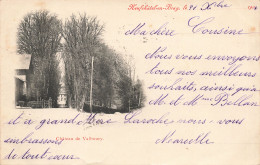 Neufchâtel-en-Bray, le 20 Xbre 190
Ma chère Cousine
Nous vous envoyons
tous nos meilleurs
souhaits, ainsi qu'à
M. & Mme
et à grand Mère Laroche nous vous
embrassons
de tout cœur
Marcelle
Château de